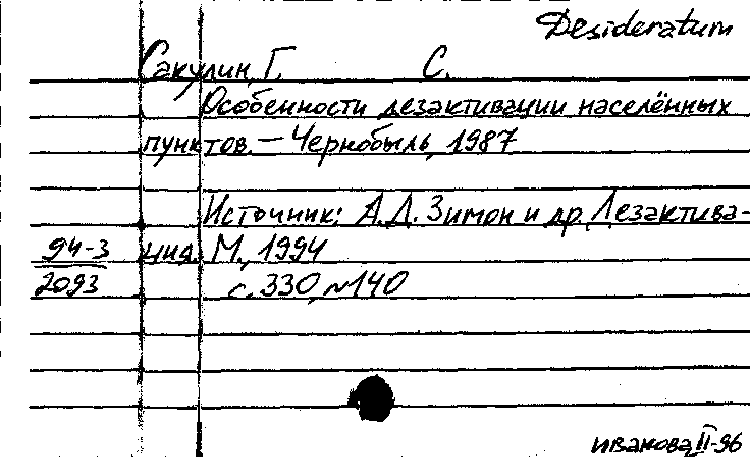 Desideratum
Сакулин, Г. С.
Особенности дезактивации населённых
пунктов. — Чернобыль, 1987
Источник: А.Д. Зимон и др. Дезактива-
94-3 ция. М., 1994
2093 с. 330, №140
иванова, II-96